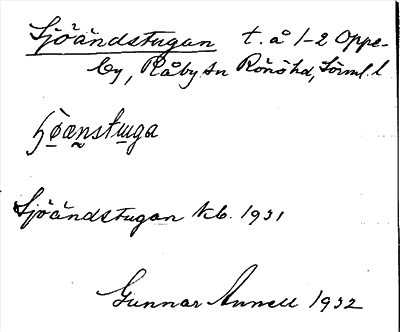 Sjöändstugan t. å 1-2 Oppe-
by, Råby sn Rönö hd, Sörml. l
Sjöändstugan Kb. 1931
Gunnar Annell 1932